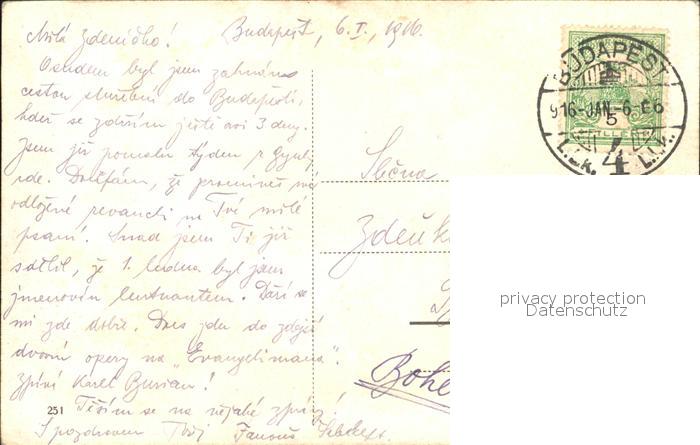 Milá Zdeničko! Budapest, 6.I. 1916.
Osudem byl jsem zahnán
cestou služební do Budapešti,
kdež se zdržím ještě asi 3 dny.
Jsem již pomalu týden z
Doufám, že promineš mé
odložené revanchi na Tvé milé
psaní. Snad jsem Ti již
sdělil, že 1. ledna byl jsem
jmenován leutnantem. Daří se
mi zde dobře. Dnes jdu do zdejší
dvorní opery na "Evangelimana".
Zpívá Karel Burian!
Těším se na nějaké zprávy!
S pozdravem Tvůj
251
Slečna
Zdeňk
Bohe
BUDAPEST
916-JAN-6
5
4
privacy protection
Datenschutz